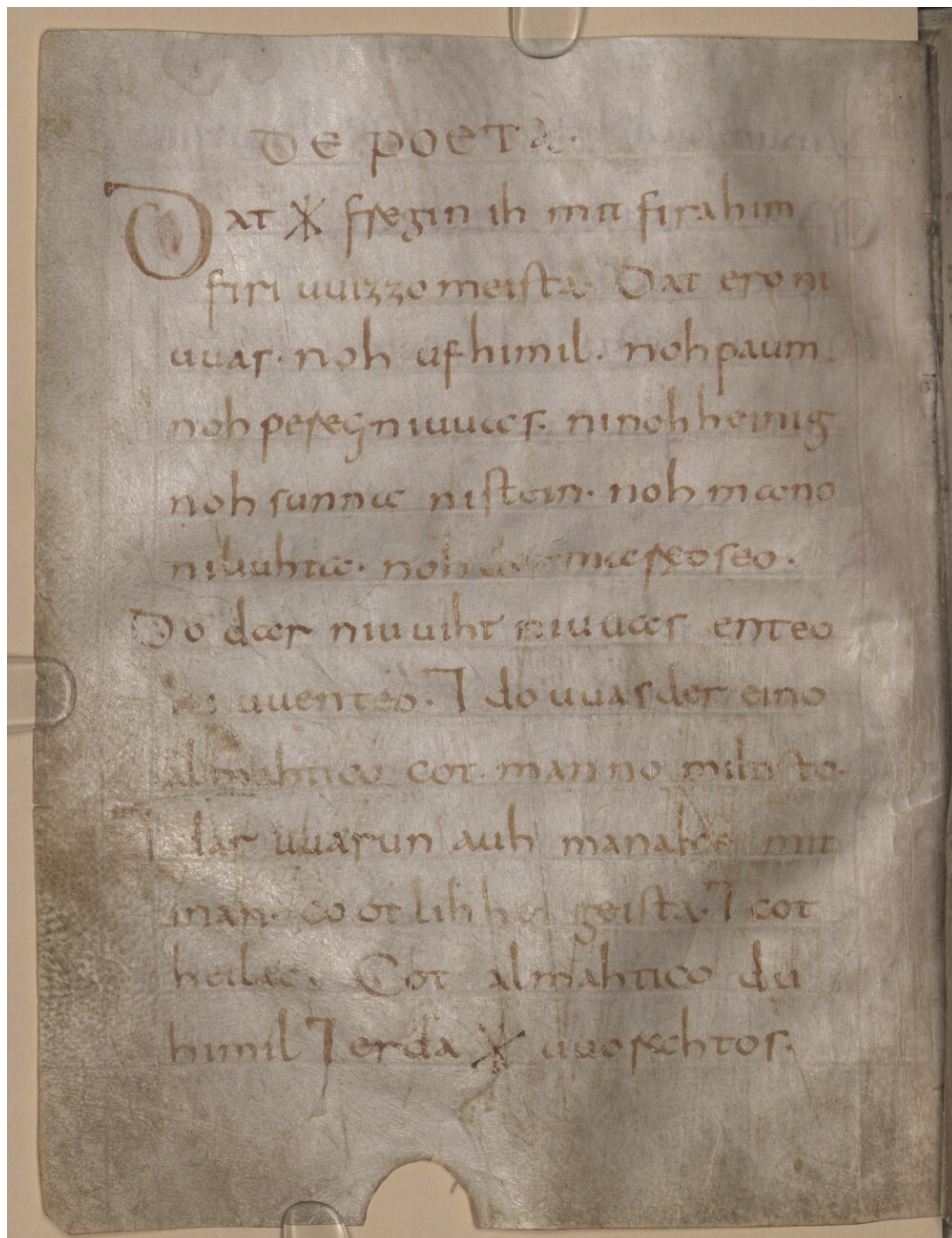 DE POETA·
Dat ᚷ fregin ih mit firahim
firi uuizzo meista· Dat ero ni
uuas· noh ufhimil· noh paum
noh pereg niuuas· ninohheinig
noh sunna nistein· noh mano
niliuhta· noh der mareoseo·
Do dar niuuiht niuuas enteo
ni uuenteo· ⁊ do uuas der eino
almahtico cot· manno miltisto·
⁊ dar uuarun auh manake mit
inan· cootlihhe geista· ⁊ cot
heilac· Cot almahtico du
himil ⁊ erda ᚷ uuorahtos·